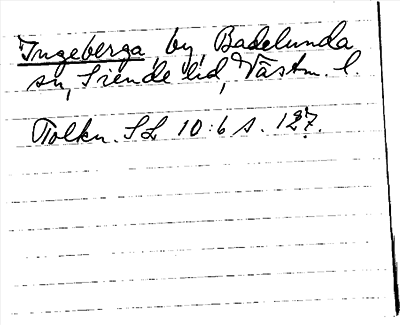 Ingeberga, by, Badelunda
sn, Siende hd, Västm. l.
Tolkn. SL 10:6 s. 127.